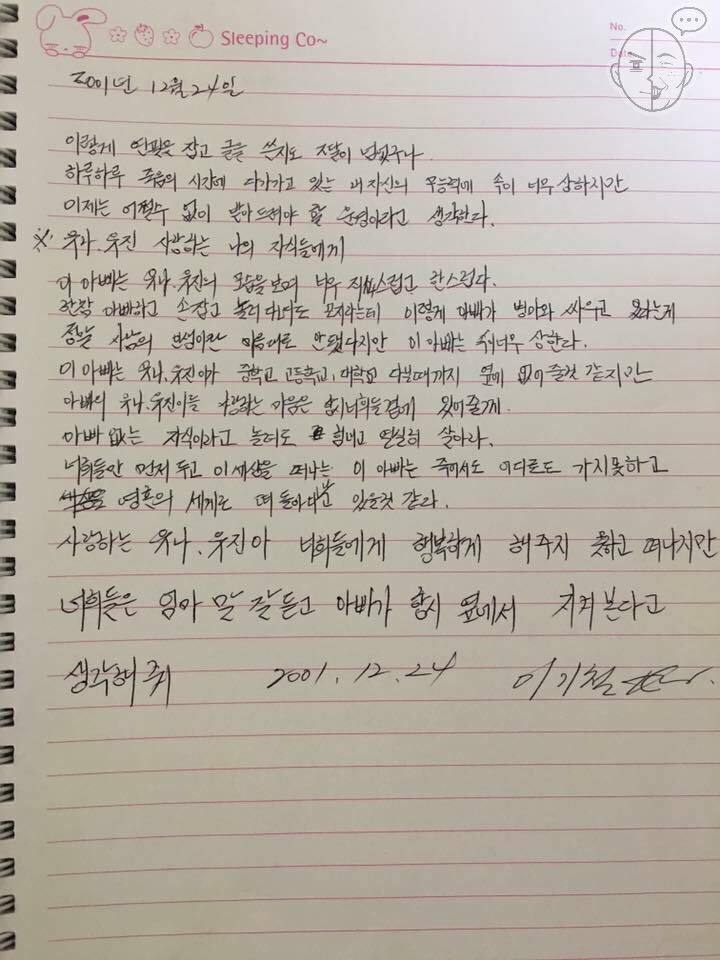 Sleeping Co~
No.
Date
2001년 12월 24일
이렇게 연필을 잡고 글을 쓴지도 2달이 넘었구나
하루하루 죽음의 시간에 다가가고 있는 내 자신의 무능력에 속이 너무 상하지만
이제는 어쩔수 없이 받아드려야 할 운명이라고 생각한다.
※ 유나. 우진 사랑하는 나의 자식들에게
이 아빠는 유나.우진의 모습을 보며 너무 스럽고 한스럽다.
한참 아빠하고 손잡고 놀러 다녀도 모자라는데 이렇게 아빠가 병마와 싸우고 있다는게
정말 사람의 인생이란 마음대로 안됀다지만 이 아빠는 너무 상한다.
이 아빠는 유나.우진이가 중학교 고등학교, 대학교 다닐때까지 옆에 없어 줄것 같지만
아빠의 유나.우진이를 사랑하는 마음은 항시 너희들 곁에 있어 줄께.
아빠 없는 자식이라고 놀려도 힘내고 열실히 살아라.
너희들만 먼저 두고 이 세상을 떠나는 이 아빠는 죽어서도 어디로도 가지못하고
영혼의 세계로 떠 돌아다니고 있을것 같다.
사랑하는 유나.우진아 너희들에게 행복하게 해주지 못하고 떠나지만
너희들은 엄마 말 잘듣고 아빠가 항시 옆에서 지켜본다고
생각해 줘 2001.12.24 이기철